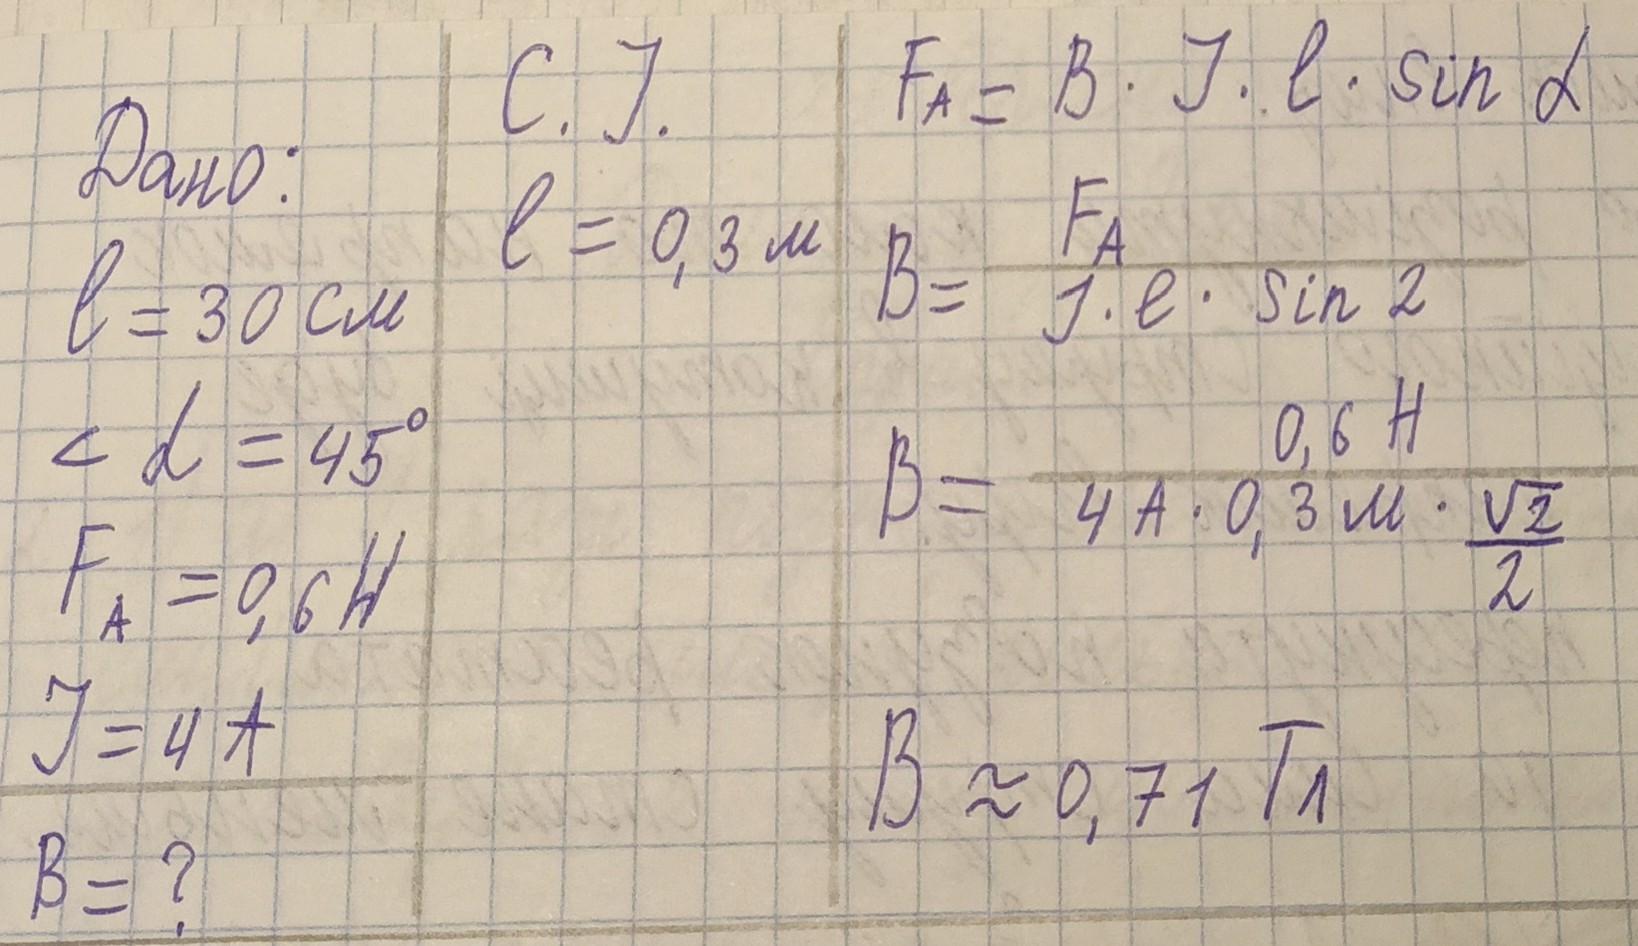 Дано:
l = 30 см
< α = 45°
F_A = 0,6 Н
J = 4 А
B = ?
С. J.
l = 0,3 м
F_A = B · J · l · sin α
B = F_A / J · l · sin 2
B = 0,6 Н / 4 А · 0,3 м · √2/2
B ≈ 0,71 Тл